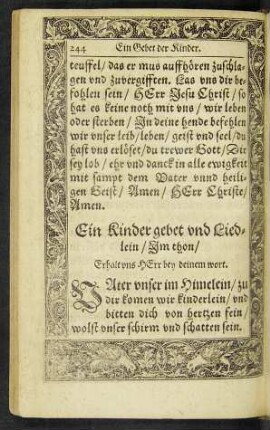 244 Ein Gebet der Kinder.
teuffel / das er mus auffhören zuschla-
gen vnd zuvergifften. Las vns dir be-
fohlen sein / HErr Jesu Christ / so
hat es keine noth mit vns / wir leben
oder sterben / In deine hende befehlen
wir vnser leib / leben / geist vnd seel / du
hast vns erlöset / du trewer Gott / Dir
sey lob / ehr vnd danck in alle ewigkeit
mit sampt dem Vater vnnd heili-
gen Geist / Amen / HErr Christe /
Amen.
Ein Kinder gebet vnd Lied-
lein / Im thon /
Erhalt vns HErr bey deinem wort.
VAter vnser im Himelein / zu
dir komen wir kinderlein / vnd
bitten dich von hertzen fein /
wolst vnser schirm vnd schatten sein.